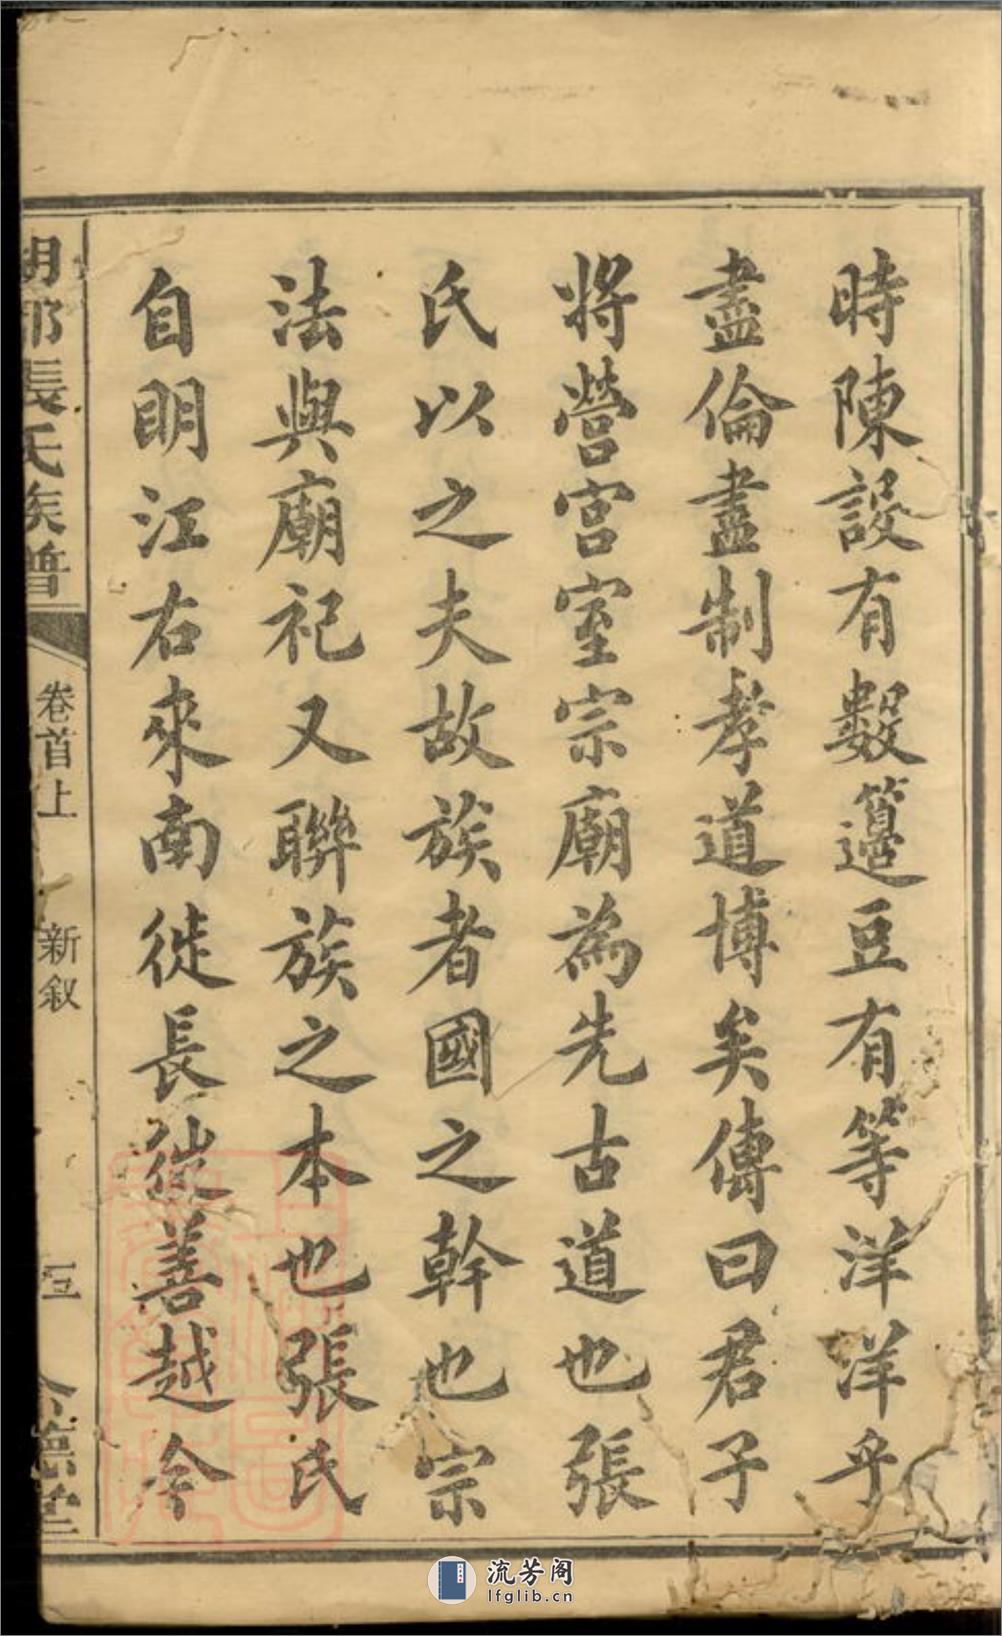 時陳設有數籩豆有等洋洋乎
盡倫盡制孝道博矣傳曰君子
將營宮室宗廟為先古道也張
氏以之夫故族者國之幹也宗
法與廟祀又聯族之本也張氏
自明江右來南徙長從善越今
張氏族普
卷首上
新叙
三
德堂
流芳阁
lfglib.cn